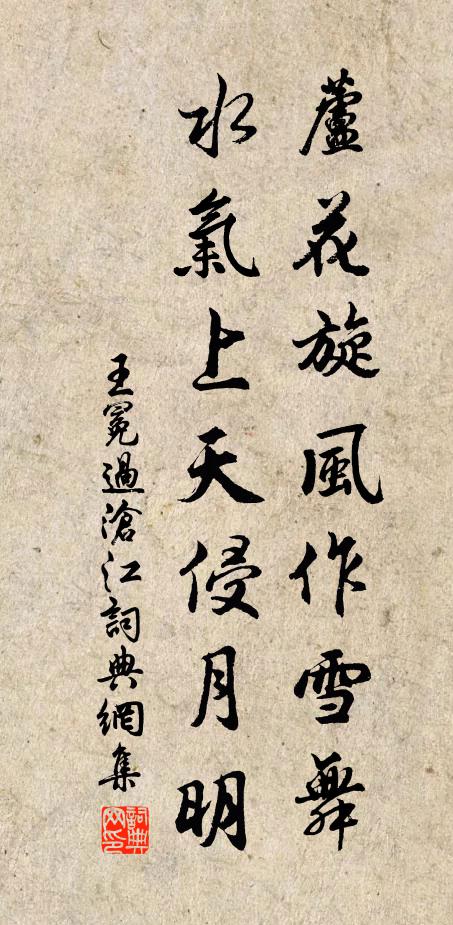 蘆花旋風作雪舞
水氣上天侵月明
王冕過滄江詞典網集
詞典網印